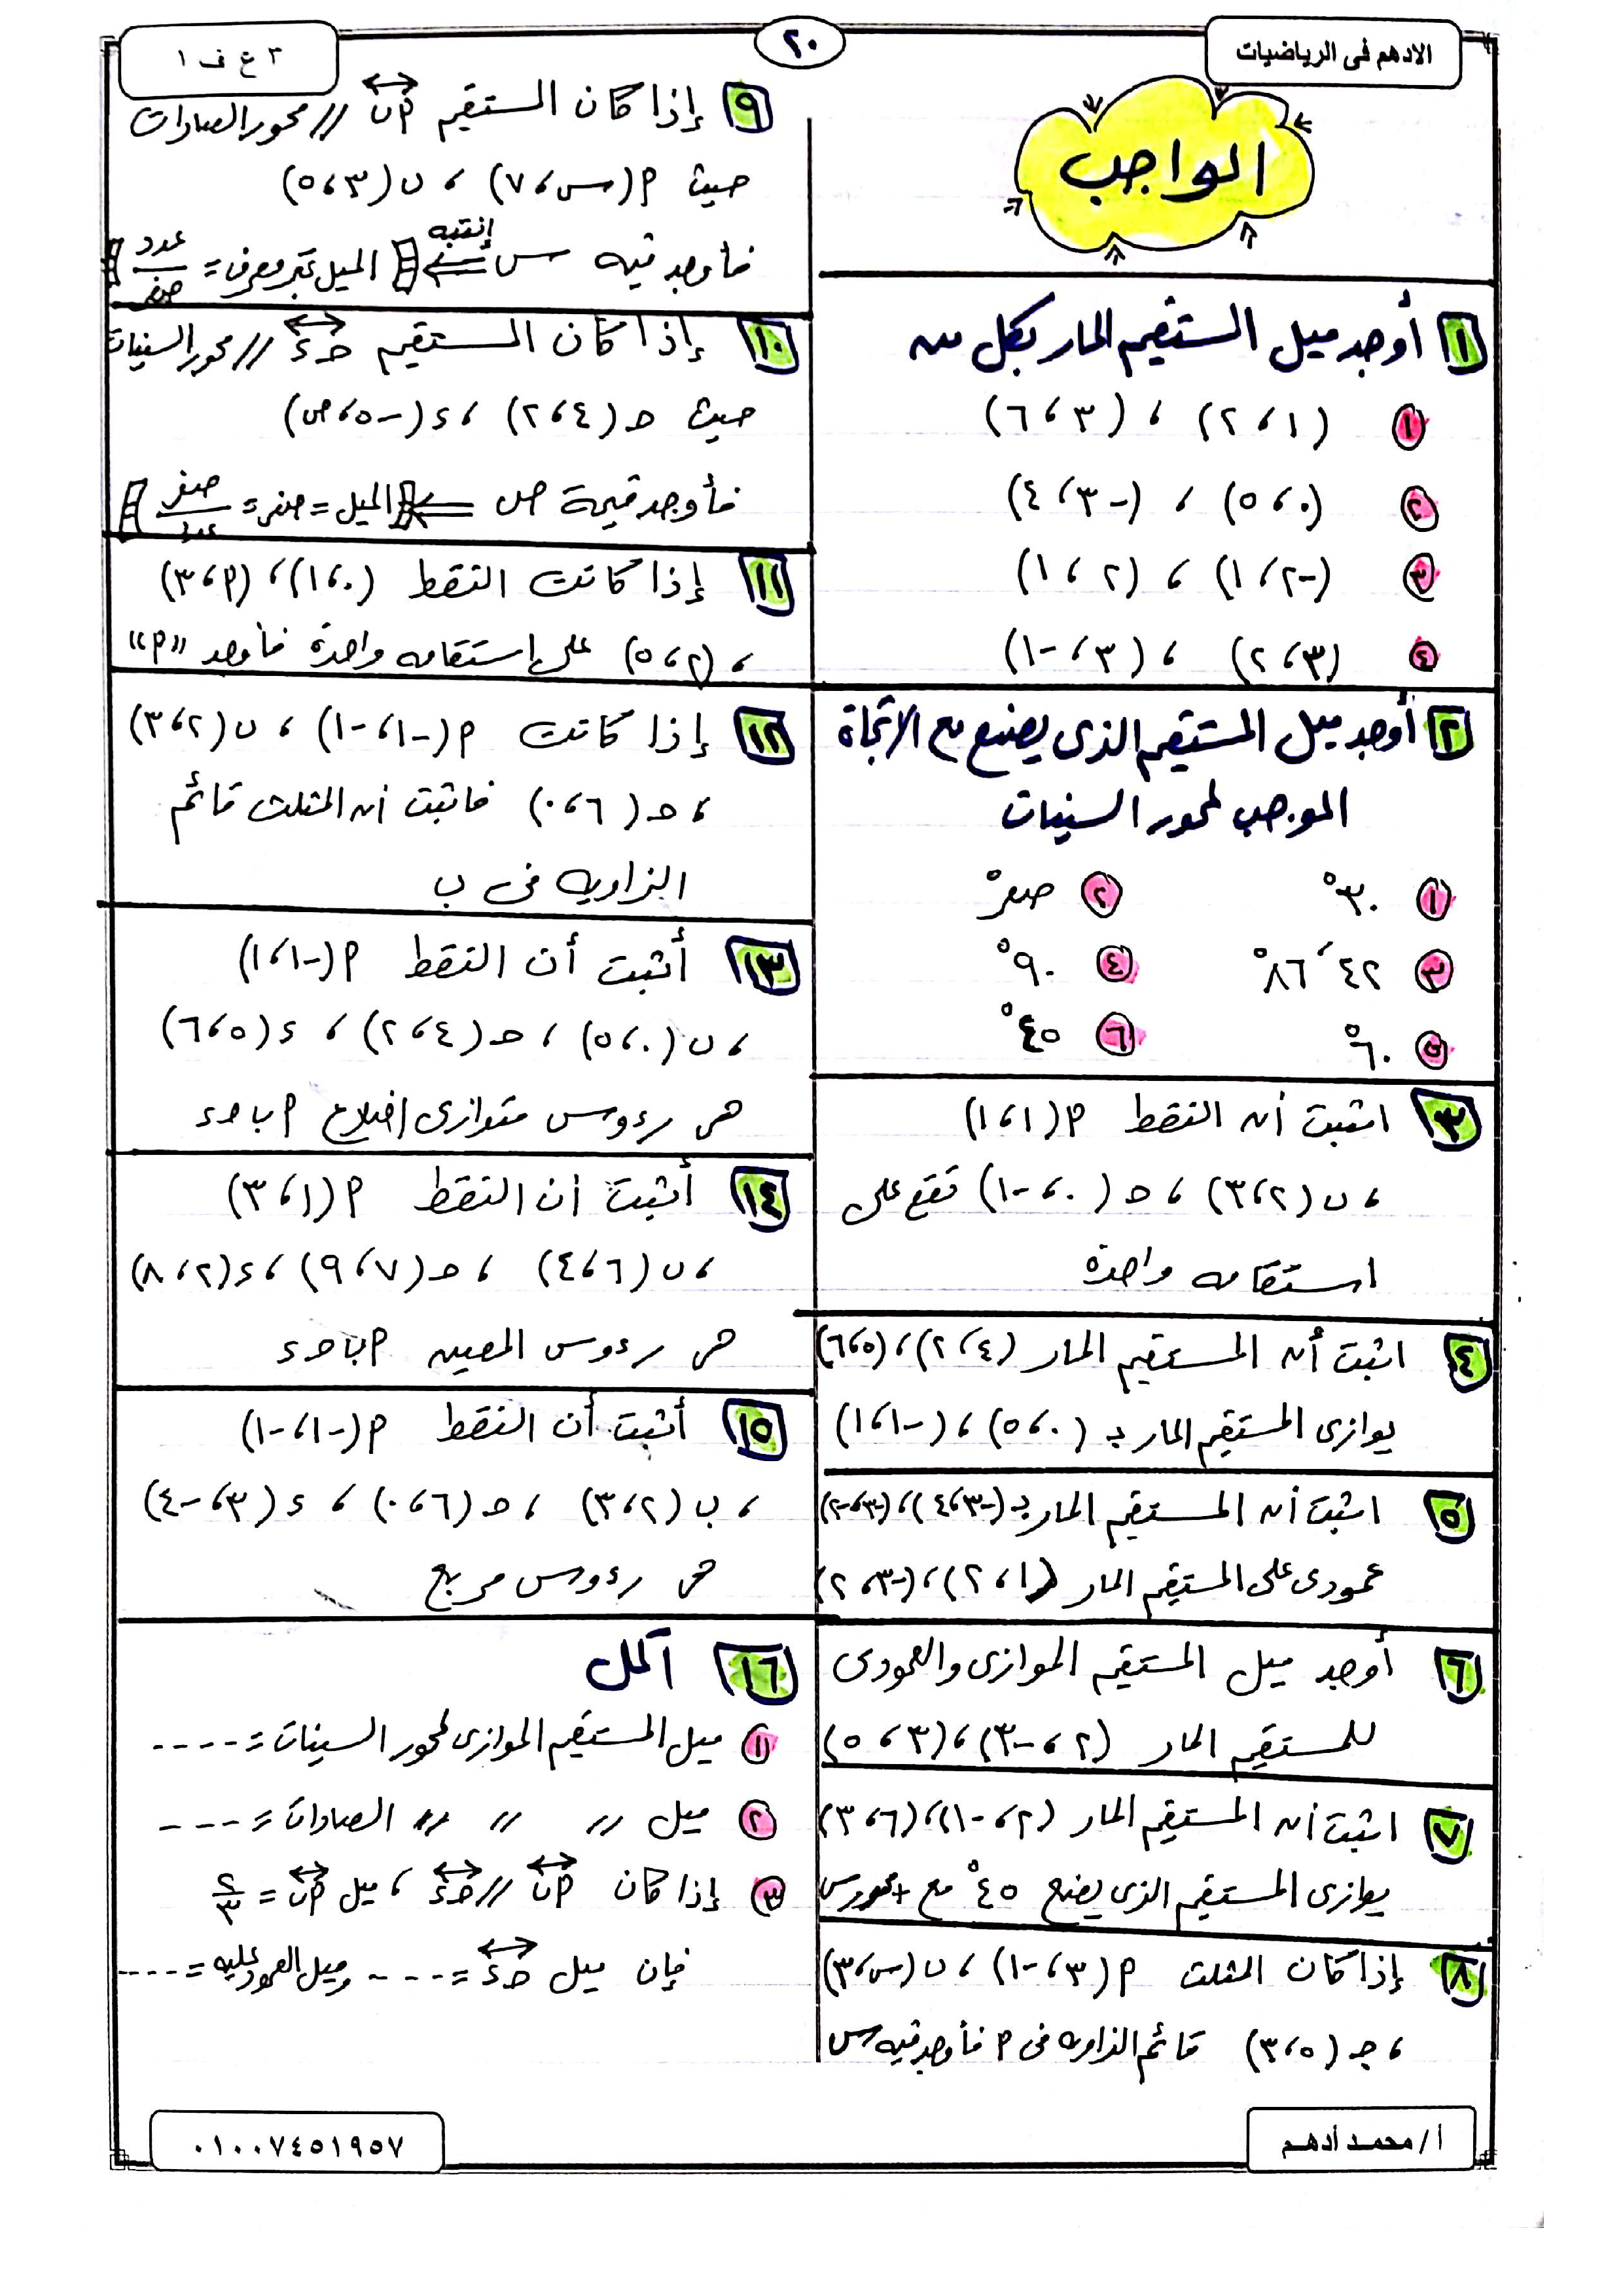 الادهم فى الرياضيات
٢٠
٣ ع ف ١
الواجب
١ أوجد ميل المستقيم المار بكل من
١ (١ ، ٢) ، (٣ ، ٦)
٢ (٠ ، ٥) ، (-٣ ، ٤)
٣ (-٢ ، ١) ، (٢ ، ١)
٤ (٣ ، ٢) ، (٣ ، -١)
٢ أوجد ميل المستقيم الذى يصنع مع الاتجاة
الموجب لمحور السينات
١ ٣٠° ٢ صفر°
٣ ٤٢َ ٨٦° ٤ ٩٠°
٥ ٦٠° ٦ ٤٥°
٣ اثبت أن النقط P (١ ، ١)
، ں (٢ ، ٣) ، حـ (٠ ، -١) تقع على
استقامه واحدة
٤ اثبت أن المستقيم المار (٤ ، ٢) ، (٥ ، ٦)
يوازى المستقيم المار بـ (٠ ، ٥) ، (-١ ، ١)
٥ اثبت أن المستقيم المار بـ (-٣ ، ٤) ، (-٣ ، -٢)
عمودى على المستقيم المار (١ ، ٢) ، (-٣ ، ٢)
٦ أوجد ميل المستقيم الموازى والعمودى
للمستقيم المار (٢ ، -٣) ، (٣ ، ٥)
٧ اثبت أن المستقيم المار (٢ ، -١) ، (٦ ، ٣)
يوازى المستقيم الذى يصنع ٤٥° مع + محور س
٨ إذا كان المثلث P (٣ ، -١) ، ں (س ، ٣)
، جـ (٥ ، ٣) قائم الزاويه فى P فأوجد قيمه س
٩ إذا كان المستقيم Pں // محور الصادات
حيث P (س ، ٧) ، ں (٣ ، ٥)
فأوجد قيمه س إنتبه [الميل غير معرف = عدد / صفر]
١٠ إذا كان المستقيم حـ ء // محور السينات
حيث حـ (٤ ، ٢) ، ء (-٥ ، ص)
فأوجد قيمة ص [الميل = صفر = صفر / عدد]
١١ إذا كانت النقط (٠ ، ١) ، (P ، ٣)
، (٢ ، ٥) على استقامه واحدة فأوجد "P"
١٢ إذا كانت P (-١ ، -١) ، ں (٢ ، ٣)
، حـ (٦ ، ٠) فاثبت أن المثلث قائم
الزاويه فى ب
١٣ أثبت أن النقط P (-١ ، ١)
، ں (٠ ، ٥) ، حـ (٤ ، ٢) ، ء (٥ ، ٦)
هى رءوس متوازى اضلاع P ب حـ ء
١٤ أثبت أن النقط P (١ ، ٣)
، ں (٦ ، ٤) ، حـ (٧ ، ٩) ، ء (٢ ، ٨)
هى رءوس المعين P ب حـ ء
١٥ أثبت أن النقط P (-١ ، -١)
، ب (٢ ، ٣) ، حـ (٦ ، ٠) ، ء (٣ ، -٤)
هى رءوس مربع
١٦ أكمل
١ ميل المستقيم الموازى لمحور السينات = ----
٢ ميل // // // الصادات = ----
٣ إذا كان Pں // حـ ء ، ميل Pں = ٢/٣
فإن ميل حـ ء = ---- وميل العمود عليه = ----
أ / محمد أدهم
٠١٠٠٧٤٥١٩٥٧